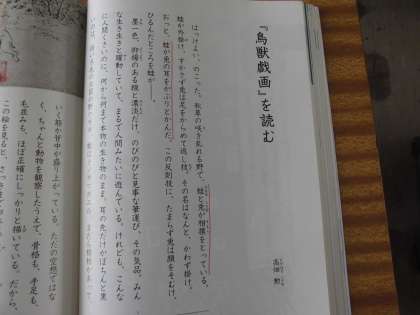 『鳥獣戯画』を読む
高畑 勲
はっけよい、のこった。秋草の咲き乱れる野で、蛙と兎が相撲をとっている。
蛙が外掛け、すかさず兎は足をからめて返し技。その名はなんと、かわず掛け。
おっと、蛙が兎の耳をがぶりとかんだ。この反則技に、たまらず兎は顔をそむけ、
ひるんだところを蛙が──。
墨一色、抑揚のある線と濃淡だけ、のびのびと見事な筆運び、その気品。みん
な生き生きと躍動していて、まるで人間みたいに遊んでいる。けれども、こんな
に人間くさいのに、何から何まで本物の生き物のまま。耳の先だけがぽちんと黒
いく筋か背中が盛り上がっている。ただの空想ではな
く、ちゃんと動物を観察したうえで、骨格も、手足も、
毛並みも、ほぼ正確にしっかりと描いている。だから、
この絵を見ると、